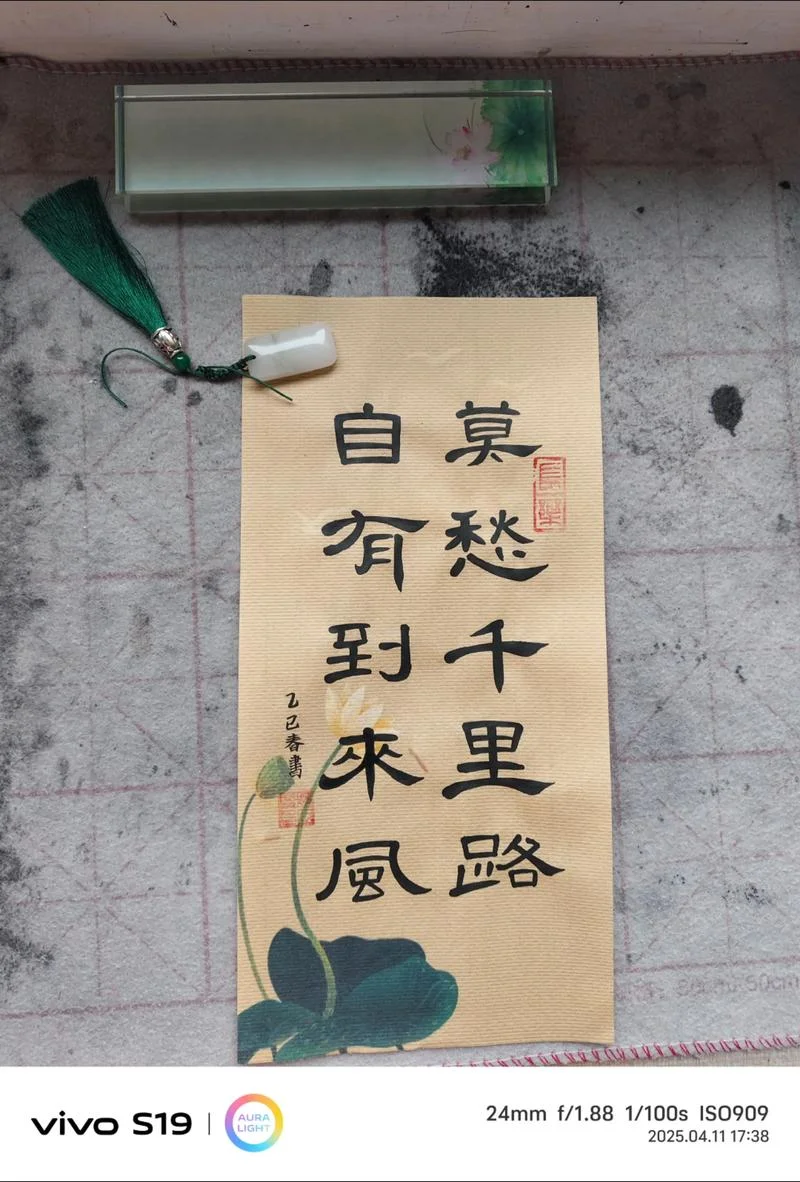 莫愁千里路
自有到來風
乙巳春書
vivo S19
AURA LIGHT
24mm f/1.88 1/100s ISO909
2025.04.11 17:38